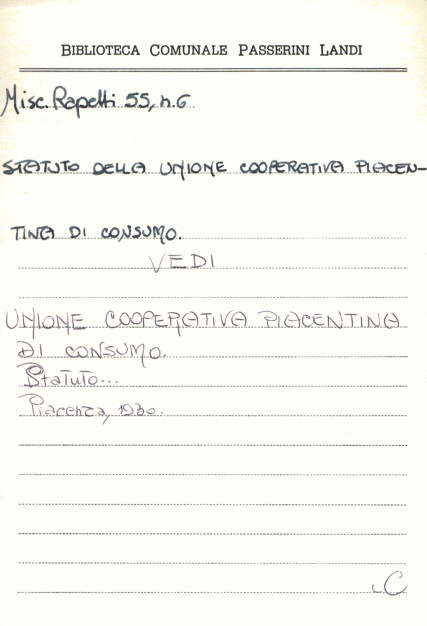 BIBLIOTECA COMUNALE PASSERINI LANDI
Misc. Rapetti 55, n. 6
STATUTO DELLA UNIONE COOPERATIVA PIACEN-
TINA DI CONSUMO.
VEDI
UNIONE COOPERATIVA PIACENTINA
DI CONSUMO.
Statuto...
Piacenza, 1930.
C